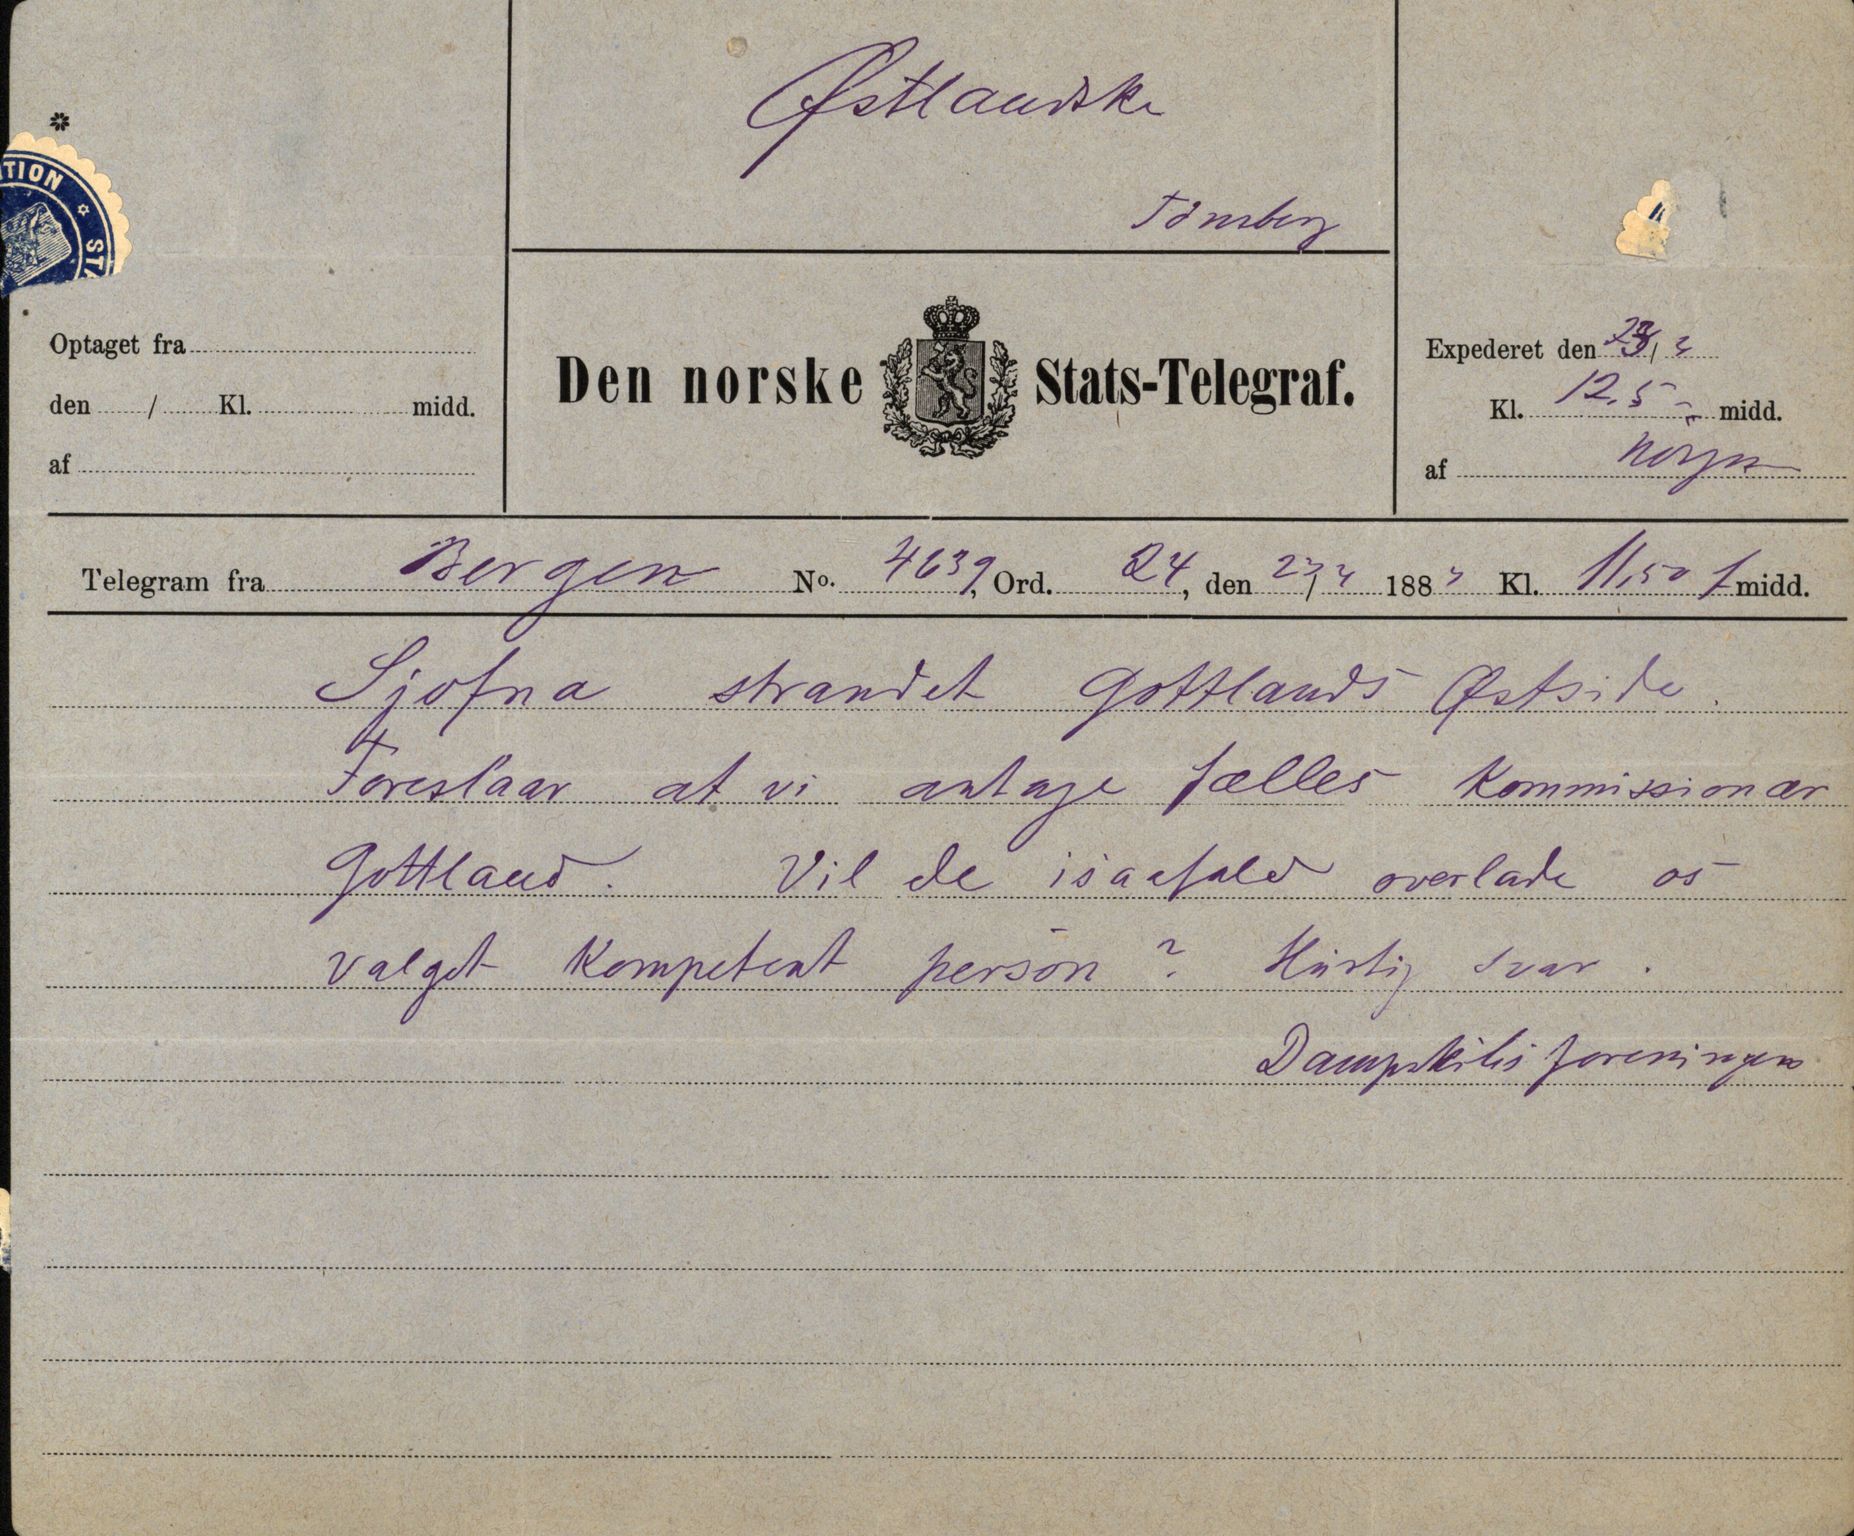 Østlandske
Tönsberg
*
TION * STA
Optaget fra
den / Kl. midd.
af
Den norske Stats-Telegraf.
Expederet den 23/3
Kl. 12.5 midd.
af
Telegram fra Bergen No. 4639, Ord. 24, den 23/3 1883 Kl. 11,50 f midd.
Sjofna strandet Gottlands Østside.
Foreslaar at vi antage fælles Kommissionær
Gottland. Vil de isaafald overlade os
valget Kompetent person? Hurtig svar.
Dampskibsforeningen